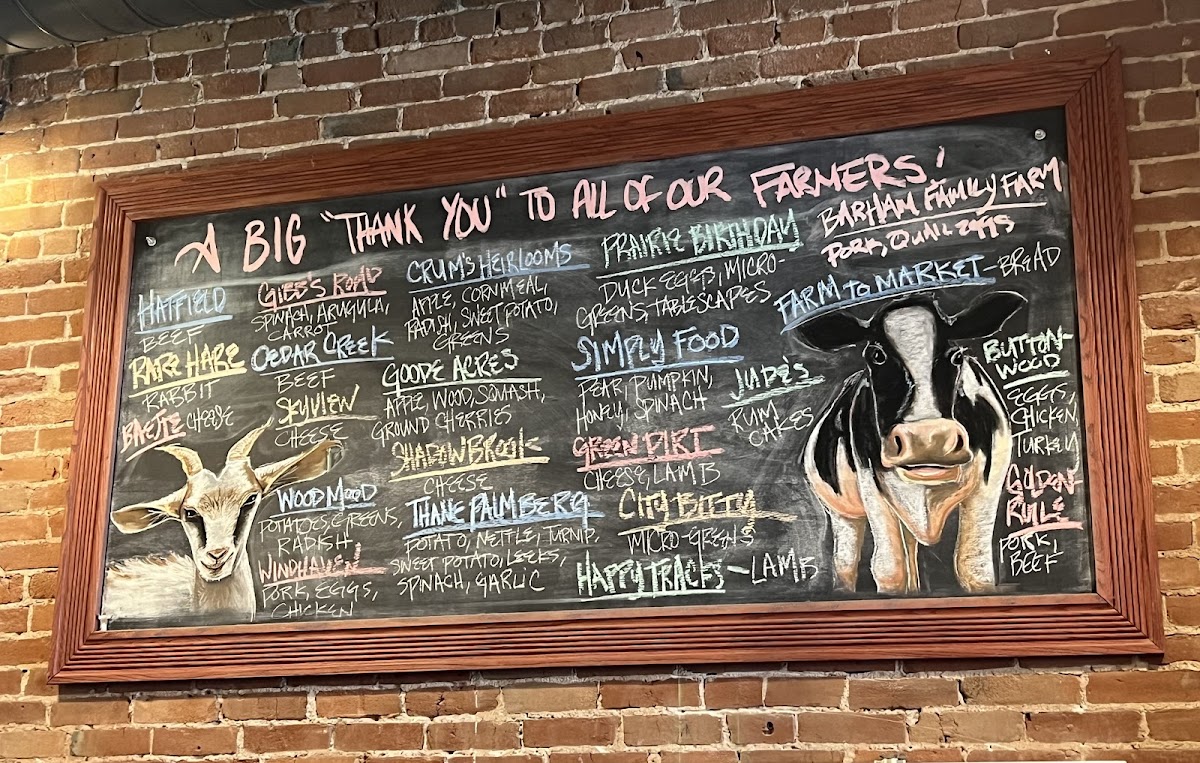 A BIG "THANK YOU" TO ALL OF OUR FARMERS!
HATFIELD
BEEF
RARE HARE
RABBIT
BAETJE CHEESE
GIBB'S ROAD
SPINACH, ARUGULA,
CARROT
CEDAR CREEK
BEEF
SKYVIEW
CHEESE
WOOD MOOD
POTATOES, GREENS,
RADISH
WINDHAVEN
PORK, EGGS,
CHICKEN
CRUM'S HEIRLOOMS
APPLE, CORNMEAL,
RADISH, SWEET POTATO,
GREENS
GOODE ACRES
APPLE, WOOD, SQUASH,
GROUND CHERRIES
SHADOWBROOK
CHEESE
THANE PALMBERG
POTATO, NETTLE, TURNIP,
SWEET POTATO, LEEKS,
SPINACH, GARLIC
PRAIRIE BIRTHDAY
DUCK EGGS, MICRO-
GREENS, TABLESCAPES
SIMPLY FOOD
PEAR, PUMPKIN,
HONEY, SPINACH
GREEN DIRT
CHEESE, LAMB
CITY BITTY
MICRO-GREENS
HAPPY TRACKS - LAMB
JUDE'S
RUM
CAKES
BARHAM FAMILY FARM
PORK, QUAIL EGGS
FARM TO MARKET - BREAD
BUTTON-
WOOD
EGGS,
CHICKEN,
TURKEY
GOLDEN-
RULE
PORK,
BEEF